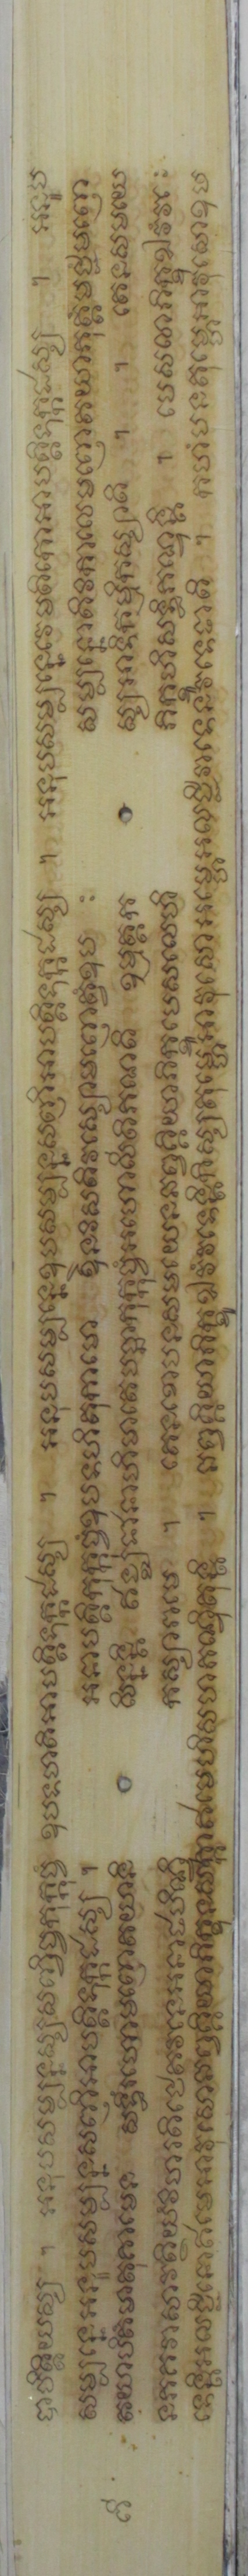 បាចិត្តិយស្ស ។ អនុបសម្បន្នស្សសញ្ចិច្ចកុក្កុច្ចំ ឧបទហតិអាបត្តិទុក្កដស្ស ។ អនុបសម្បន្នេឧបសម្បន្នសញីអាបត្តិទុក្កដស្ស ។ អនុបសម្បន្នេវេមតិកោអាបត្តិទុក្កដស្ស ។ អនុប
សម្បន្នេអនុបសម្បន្នសញីអាបត្តិទុក្កដស្ស ។ អនាបត្តិកុក្កុច្ចំឧបទហិតុកាមោ ឩនវីសតិវស្សោមញេត្វំឧប ះ សម្បន្នោតិវិកាលេមញេតយាភុត្តំមជ្ជំមញេ
តយាបិតំមាតុគាមេន សទ្ធឹរហោមញេតយានិ សិន្នន្តិ ឥង្ឃជានាហិមាតេបច្ឆាកុក្កុច្ចំអហោសីតិភណតិ ឧម្មត្តក ស្សអាទិកម្មិកស្សាតិ ។ ។ តេនសមយេ
នភគវាសាវត្ថិយំវិហរតិជេតវនេអនាថបិណ្ឌិ កស្សារាមេ ។ តេនខោបនសមយេនឆព្វគ្គិយាភិក្ខូបេសលេហិ ភិក្ខូហិសទ្ធឹភណ្ឌន្តិ ។ បេសលាភិក្ខូឯវំវ ះ
ទេន្តិអលជ្ជិនោឥមេអាវុសោឆព្វគ្គិយាភិក្ខូនសក្កាឥមេហិសហភណ្ឌិតុន្តិ ។ ឆព្វគ្គិយាភិក្ខូឯវំវទេន្តិកិស្សតុម្ហេអាវុសោអម្ហេអលជ្ជិវាទេនវទេថាតិ ។ កហំបនតុម្ហេអាវុសោឧប